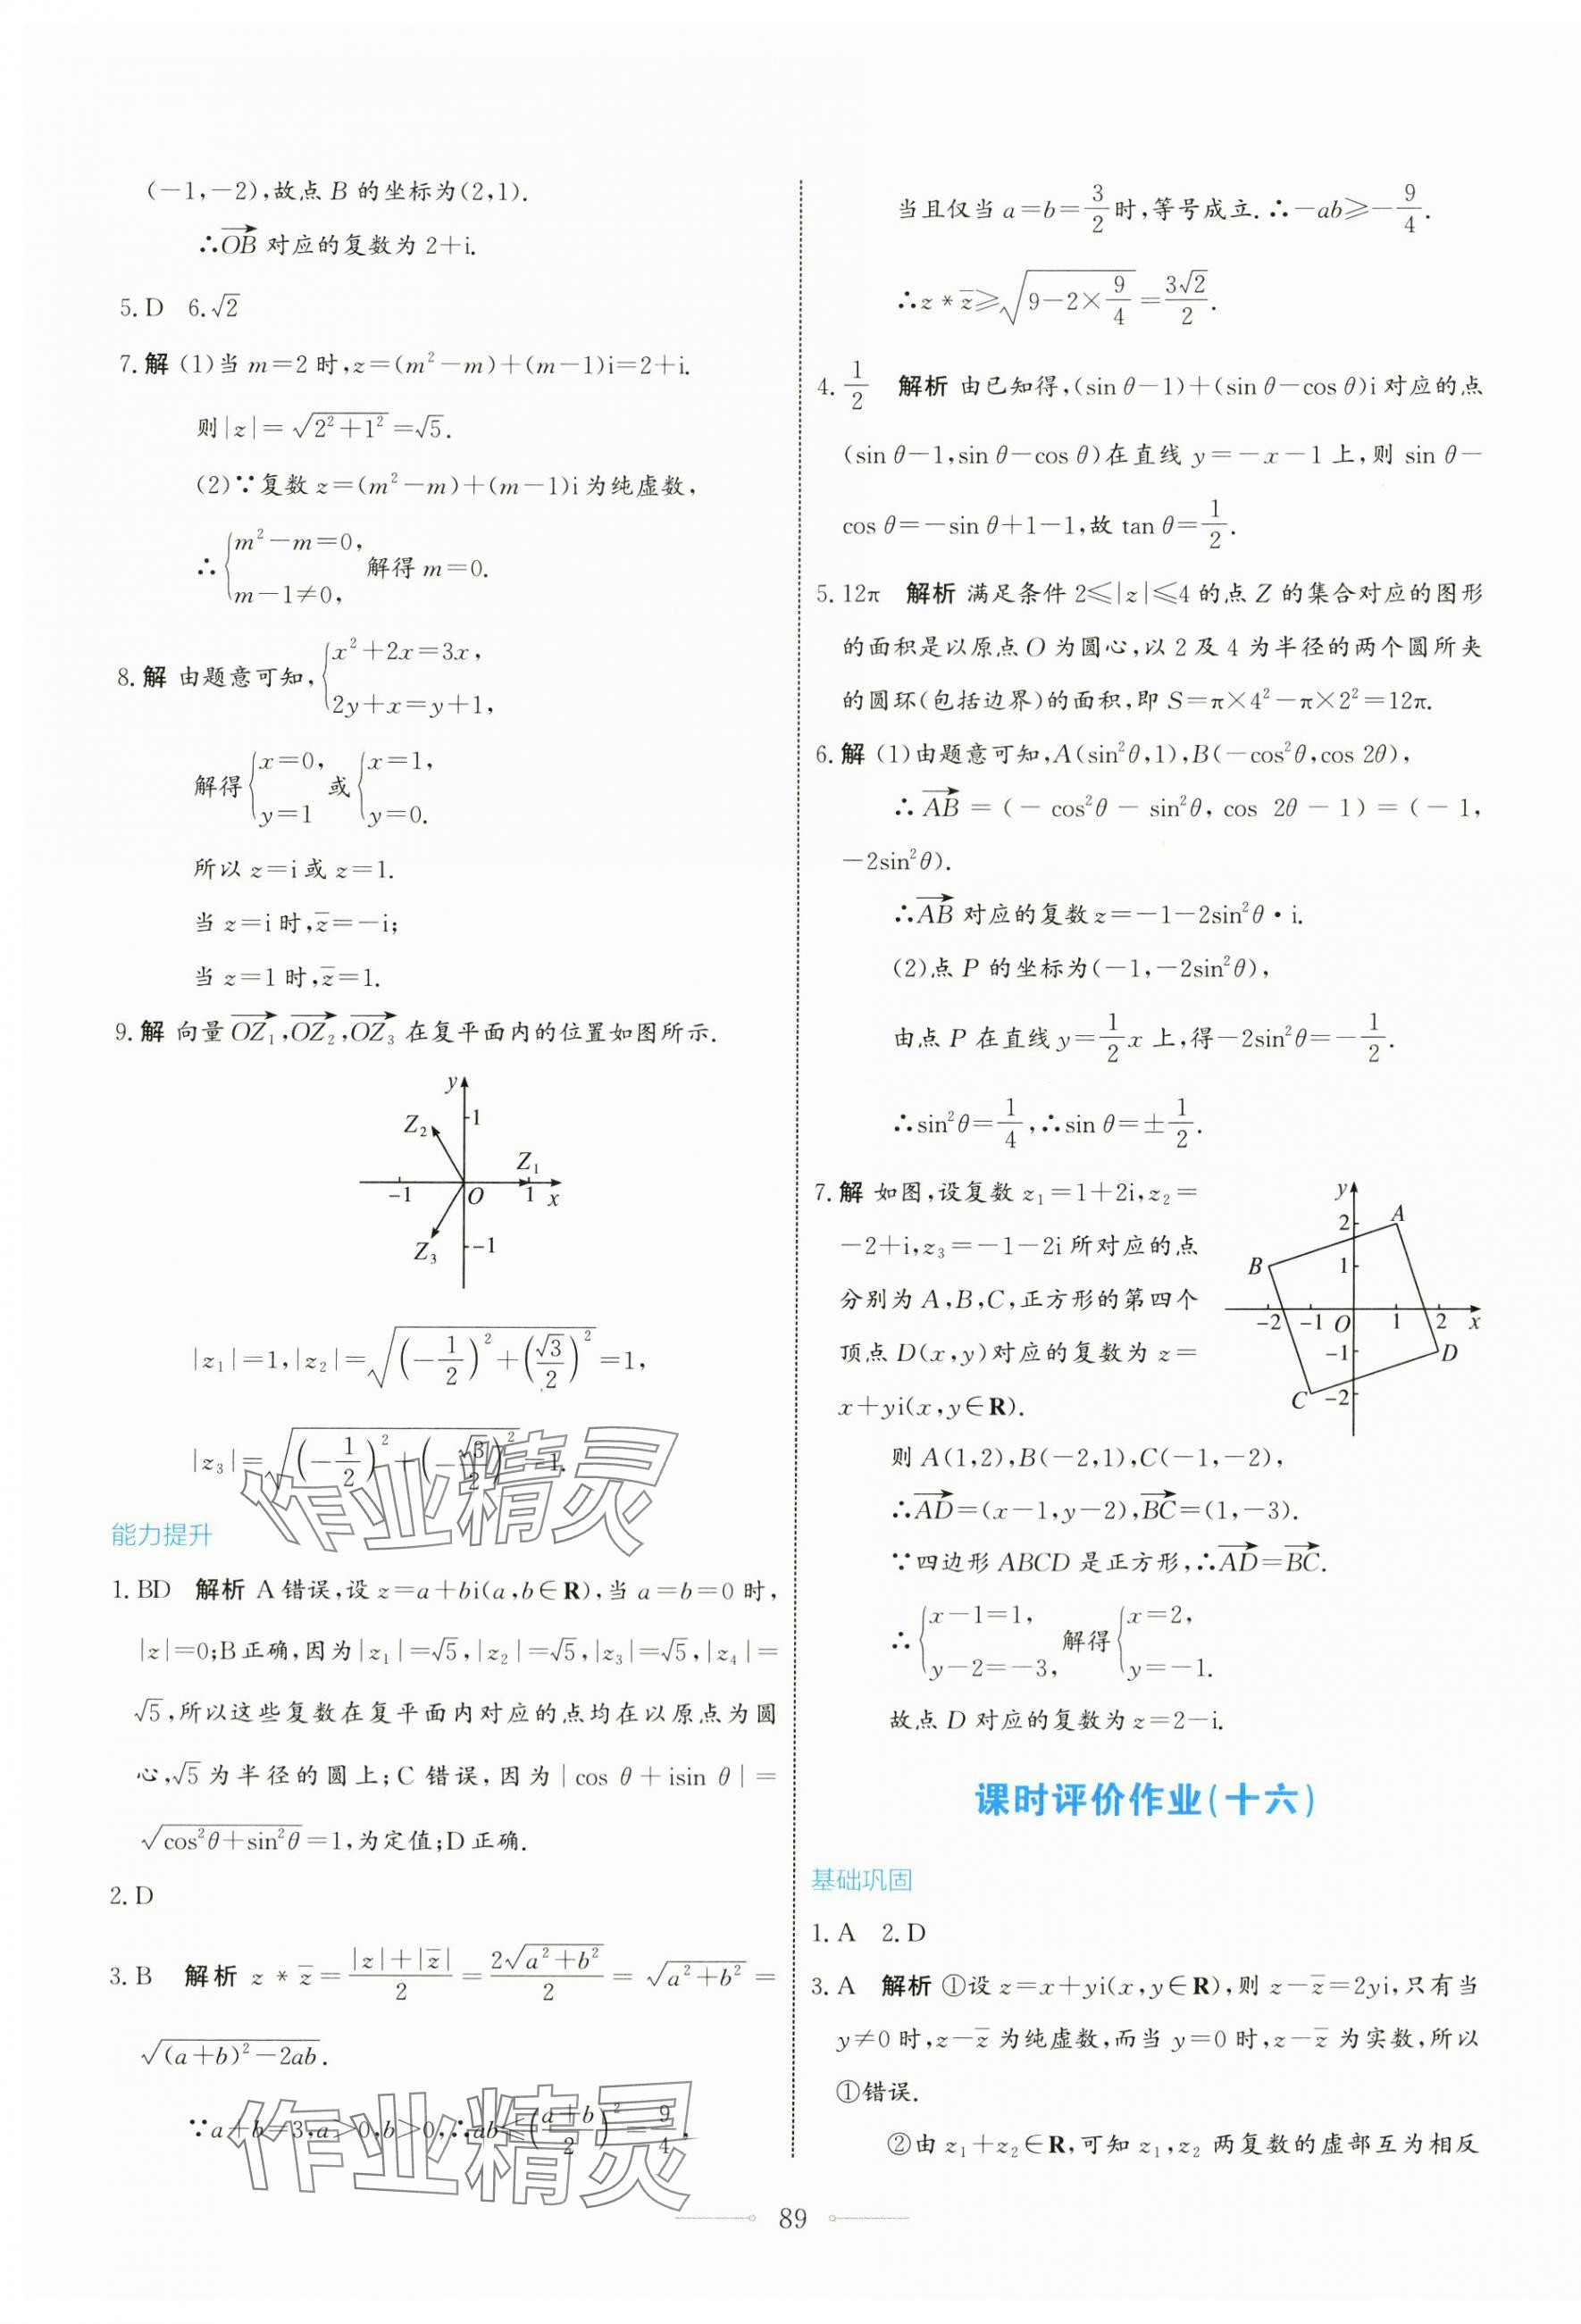 (－1,－2),故点 B 的坐标为(2,1).
∴$\overrightarrow{OB}$ 对应的复数为 2＋i.
5. D　6. $\sqrt{2}$
7. 解 (1)当 m＝2 时,z＝(m²－m)＋(m－1)i＝2＋i.
则|z|＝$\sqrt{2^2+1^2}$＝$\sqrt{5}$.
(2)∵复数 z＝(m²－m)＋(m－1)i 为纯虚数,
∴$\begin{cases}m^2-m=0,\\m-1\neq0,\end{cases}$ 解得 m＝0.
8. 解 由题意可知,$\begin{cases}x^2+2x=3x,\\2y+x=y+1,\end{cases}$
解得$\begin{cases}x=0,\\y=1\end{cases}$ 或 $\begin{cases}x=1,\\y=0.\end{cases}$
所以 z＝i 或 z＝1.
当 z＝i 时,$\overline{z}$＝－i;
当 z＝1 时,$\overline{z}$＝1.
9. 解 向量 $\overrightarrow{OZ_1}$,$\overrightarrow{OZ_2}$,$\overrightarrow{OZ_3}$ 在复平面内的位置如图所示.
y
1
Z₂
Z₁
－1
O
1
x
Z₃
－1
|z₁|＝1,|z₂|＝$\sqrt{\left(-\frac{1}{2}\right)^2+\left(\frac{\sqrt{3}}{2}\right)^2}$＝1,
|z₃|＝$\sqrt{\left(-\frac{1}{2}\right)^2+\left(-\frac{\sqrt{3}}{2}\right)^2}$＝1.
作业精灵
能力提升
1. BD　解析 A 错误,设 z＝a＋bi(a,b∈R),当 a＝b＝0 时,
|z|＝0;B 正确,因为|z₁|＝$\sqrt{5}$,|z₂|＝$\sqrt{5}$,|z₃|＝$\sqrt{5}$,|z₄|＝
$\sqrt{5}$,所以这些复数在复平面内对应的点均在以原点为圆
心,$\sqrt{5}$ 为半径的圆上;C 错误,因为|cos θ＋isin θ|＝
$\sqrt{\cos^2\theta+\sin^2\theta}$＝1,为定值;D 正确.
2. D
3. B　解析 z * $\overline{z}$＝$\frac{|z|+|\overline{z}|}{2}$＝$\frac{2\sqrt{a^2+b^2}}{2}$＝$\sqrt{a^2+b^2}$＝
$\sqrt{(a+b)^2-2ab}$.
∵a＋b＝3,a＞0,b＞0,∴ab≤$\left(\frac{a+b}{2}\right)^2$＝$\frac{9}{4}$,
作业精灵
当且仅当 a＝b＝$\frac{3}{2}$时,等号成立.∴－ab≥－$\frac{9}{4}$.
∴z * $\overline{z}$≥$\sqrt{9-2\times\frac{9}{4}}$＝$\frac{3\sqrt{2}}{2}$.
4. $\frac{1}{2}$　解析 由已知得,(sin θ－1)＋(sin θ－cos θ)i 对应的点
(sin θ－1,sin θ－cos θ)在直线 y＝－x－1 上,则 sin θ－
cos θ＝－sin θ＋1－1,故 tan θ＝$\frac{1}{2}$.
5. 12π　解析 满足条件 2≤|z|≤4 的点 Z 的集合对应的图形
的面积是以原点 O 为圆心,以 2 及 4 为半径的两个圆所夹
的圆环(包括边界)的面积,即 S＝π×4²－π×2²＝12π.
6. 解 (1)由题意可知,A(sin²θ,1),B(－cos²θ,cos 2θ),
∴$\overrightarrow{AB}$＝(－cos²θ－sin²θ, cos 2θ－1)＝(－1,
－2sin²θ).
∴$\overrightarrow{AB}$ 对应的复数 z＝－1－2sin²θ·i.
(2)点 P 的坐标为(－1,－2sin²θ),
由点 P 在直线 y＝$\frac{1}{2}$x 上,得－2sin²θ＝－$\frac{1}{2}$.
∴sin²θ＝$\frac{1}{4}$,∴sin θ＝±$\frac{1}{2}$.
7. 解 如图,设复数 z₁＝1＋2i,z₂＝
－2＋i,z₃＝－1－2i 所对应的点
分别为 A,B,C,正方形的第四个
顶点 D(x,y)对应的复数为 z＝
x＋yi(x,y∈R).
y
2
A
B
1
－2
－1
O
1
2
x
－1
D
C
－2
则 A(1,2),B(－2,1),C(－1,－2),
∴$\overrightarrow{AD}$＝(x－1,y－2),$\overrightarrow{BC}$＝(1,－3).
∵四边形 ABCD 是正方形,∴$\overrightarrow{AD}$＝$\overrightarrow{BC}$.
∴$\begin{cases}x-1=1,\\y-2=-3,\end{cases}$ 解得$\begin{cases}x=2,\\y=-1.\end{cases}$
故点 D 对应的复数为 z＝2－i.
课时评价作业(十六)
基础巩固
1. A　2. D
3. A　解析 ①设 z＝x＋yi(x,y∈R),则 z－$\overline{z}$＝2yi,只有当
y≠0 时,z－$\overline{z}$ 为纯虚数,而当 y＝0 时,z－$\overline{z}$ 为实数,所以
①错误.
②由 z₁＋z₂∈R,可知 z₁,z₂ 两复数的虚部互为相反
89